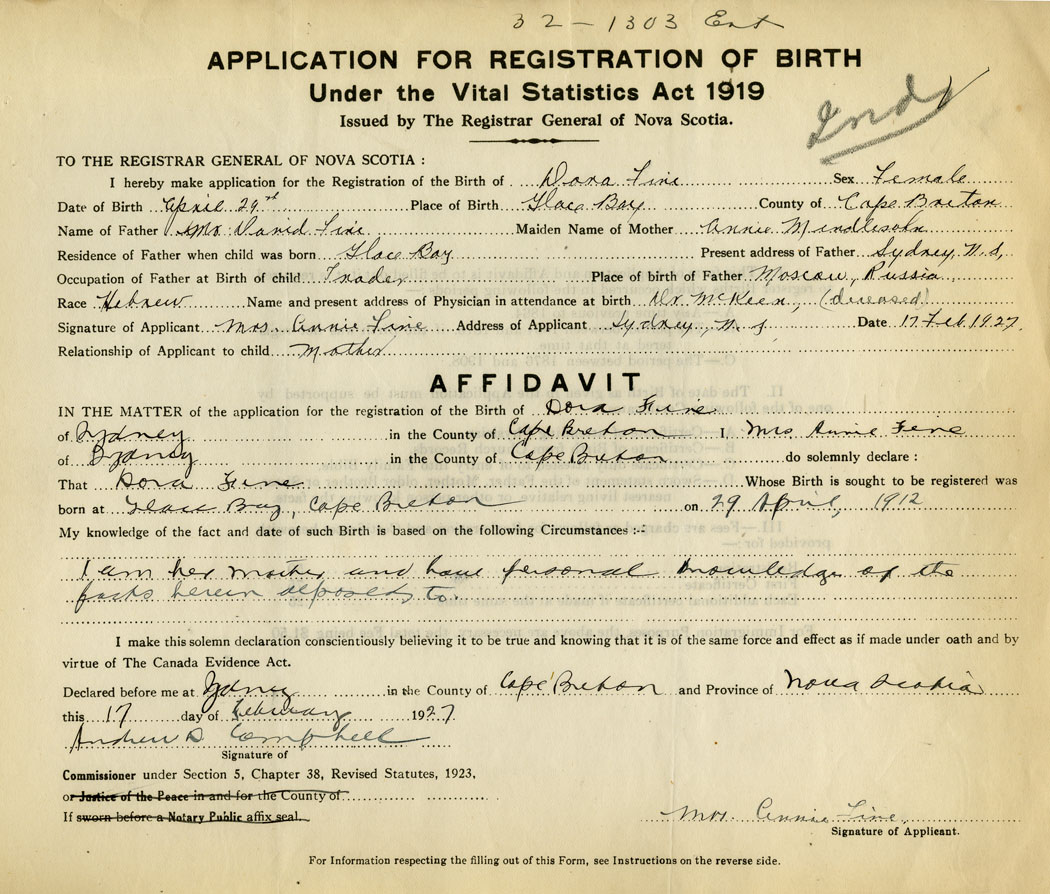 32-1303 Ent
APPLICATION FOR REGISTRATION OF BIRTH
Under the Vital Statistics Act 1919
Ind
Issued by The Registrar General of Nova Scotia.
TO THE REGISTRAR GENERAL OF NOVA SCOTIA :
I hereby make application for the Registration of the Birth of Dora Fine Sex Female
Date of Birth April 29 Place of Birth Glace Bay County of Cape Breton
Name of Father David Fine Maiden Name of Mother Annie Mindlesohn
Residence of Father when child was born Glace Bay Present address of Father Sydney, N.S,
Occupation of Father at Birth of child Trader Place of birth of Father Moscow, Russia
Race Hebrew Name and present address of Physician in attendance at birth Dr. McKeen, (deceased)
Signature of Applicant Mrs. Annie Fine Address of Applicant Sydney, N.S Date 17 Feb. 1927.
Relationship of Applicant to child Mother
AFFIDAVIT
IN THE MATTER of the application for the registration of the Birth of Dora Fine
of Sydney in the County of Cape Breton I, Mrs Annie Fine
of Sydney in the County of Cape Breton do solemnly declare :
That Dora Fine Whose Birth is sought to be registered was
born at Glace Bay, Cape Breton on 29 April, 1912
My knowledge of the fact and date of such Birth is based on the following Circumstances :-
I am her mother and have personal knowledge of the
facts herein deposed to.
I make this solemn declaration conscientiously believing it to be true and knowing that it is of the same force and effect as if made under oath and by
virtue of The Canada Evidence Act.
Declared before me at Sydney in the County of Cape Breton and Province of Nova Scotia
this 17 day of February 1927.
Andrew D. Campbell
Signature of
Commissioner under Section 5, Chapter 38, Revised Statutes, 1923,
or Justice of the Peace in and for the County of
If sworn before a Notary Public affix seal.
Mrs. Annie Fine.
Signature of Applicant.
For Information respecting the filling out of this Form, see Instructions on the reverse side.